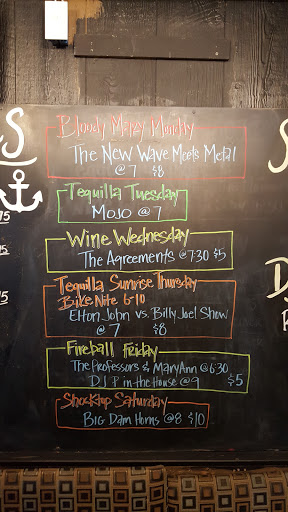 Bloody Mary Monday
The New Wave Meets Metal
@ 7 $8
Tequilla Tuesday
Mojo @ 7
Wine Wednesday
The Agreements @ 7:30 $5
Tequilla Sunrise Thursday
Bike Nite 6-10
Elton John vs. Billy Joel Show
@ 7 $8
Fireball Friday
The Professors & MaryAnn @ 6:30
DJ P in the House @ 9 $5
Shocktop Saturday
Big Dam Horns @ 8 $10